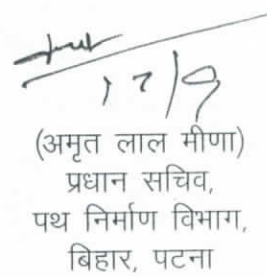 17/9
(अमृत लाल मीणा)
प्रधान सचिव,
पथ निर्माण विभाग,
बिहार, पटना